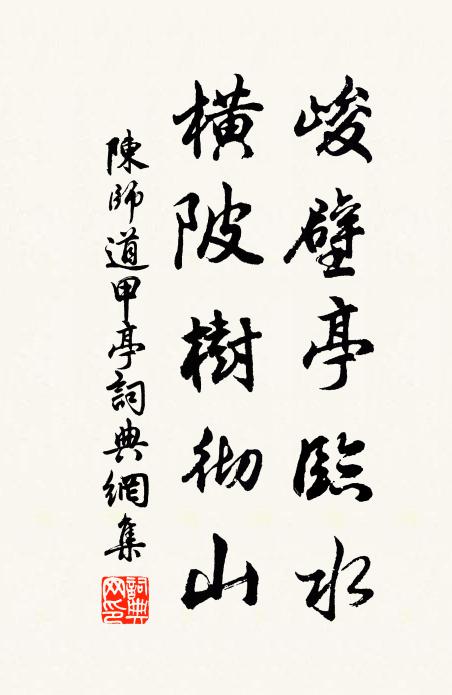 峻壁亭臨水
橫陂樹彻山
陳師道甲亭詞典網集
詞典網印